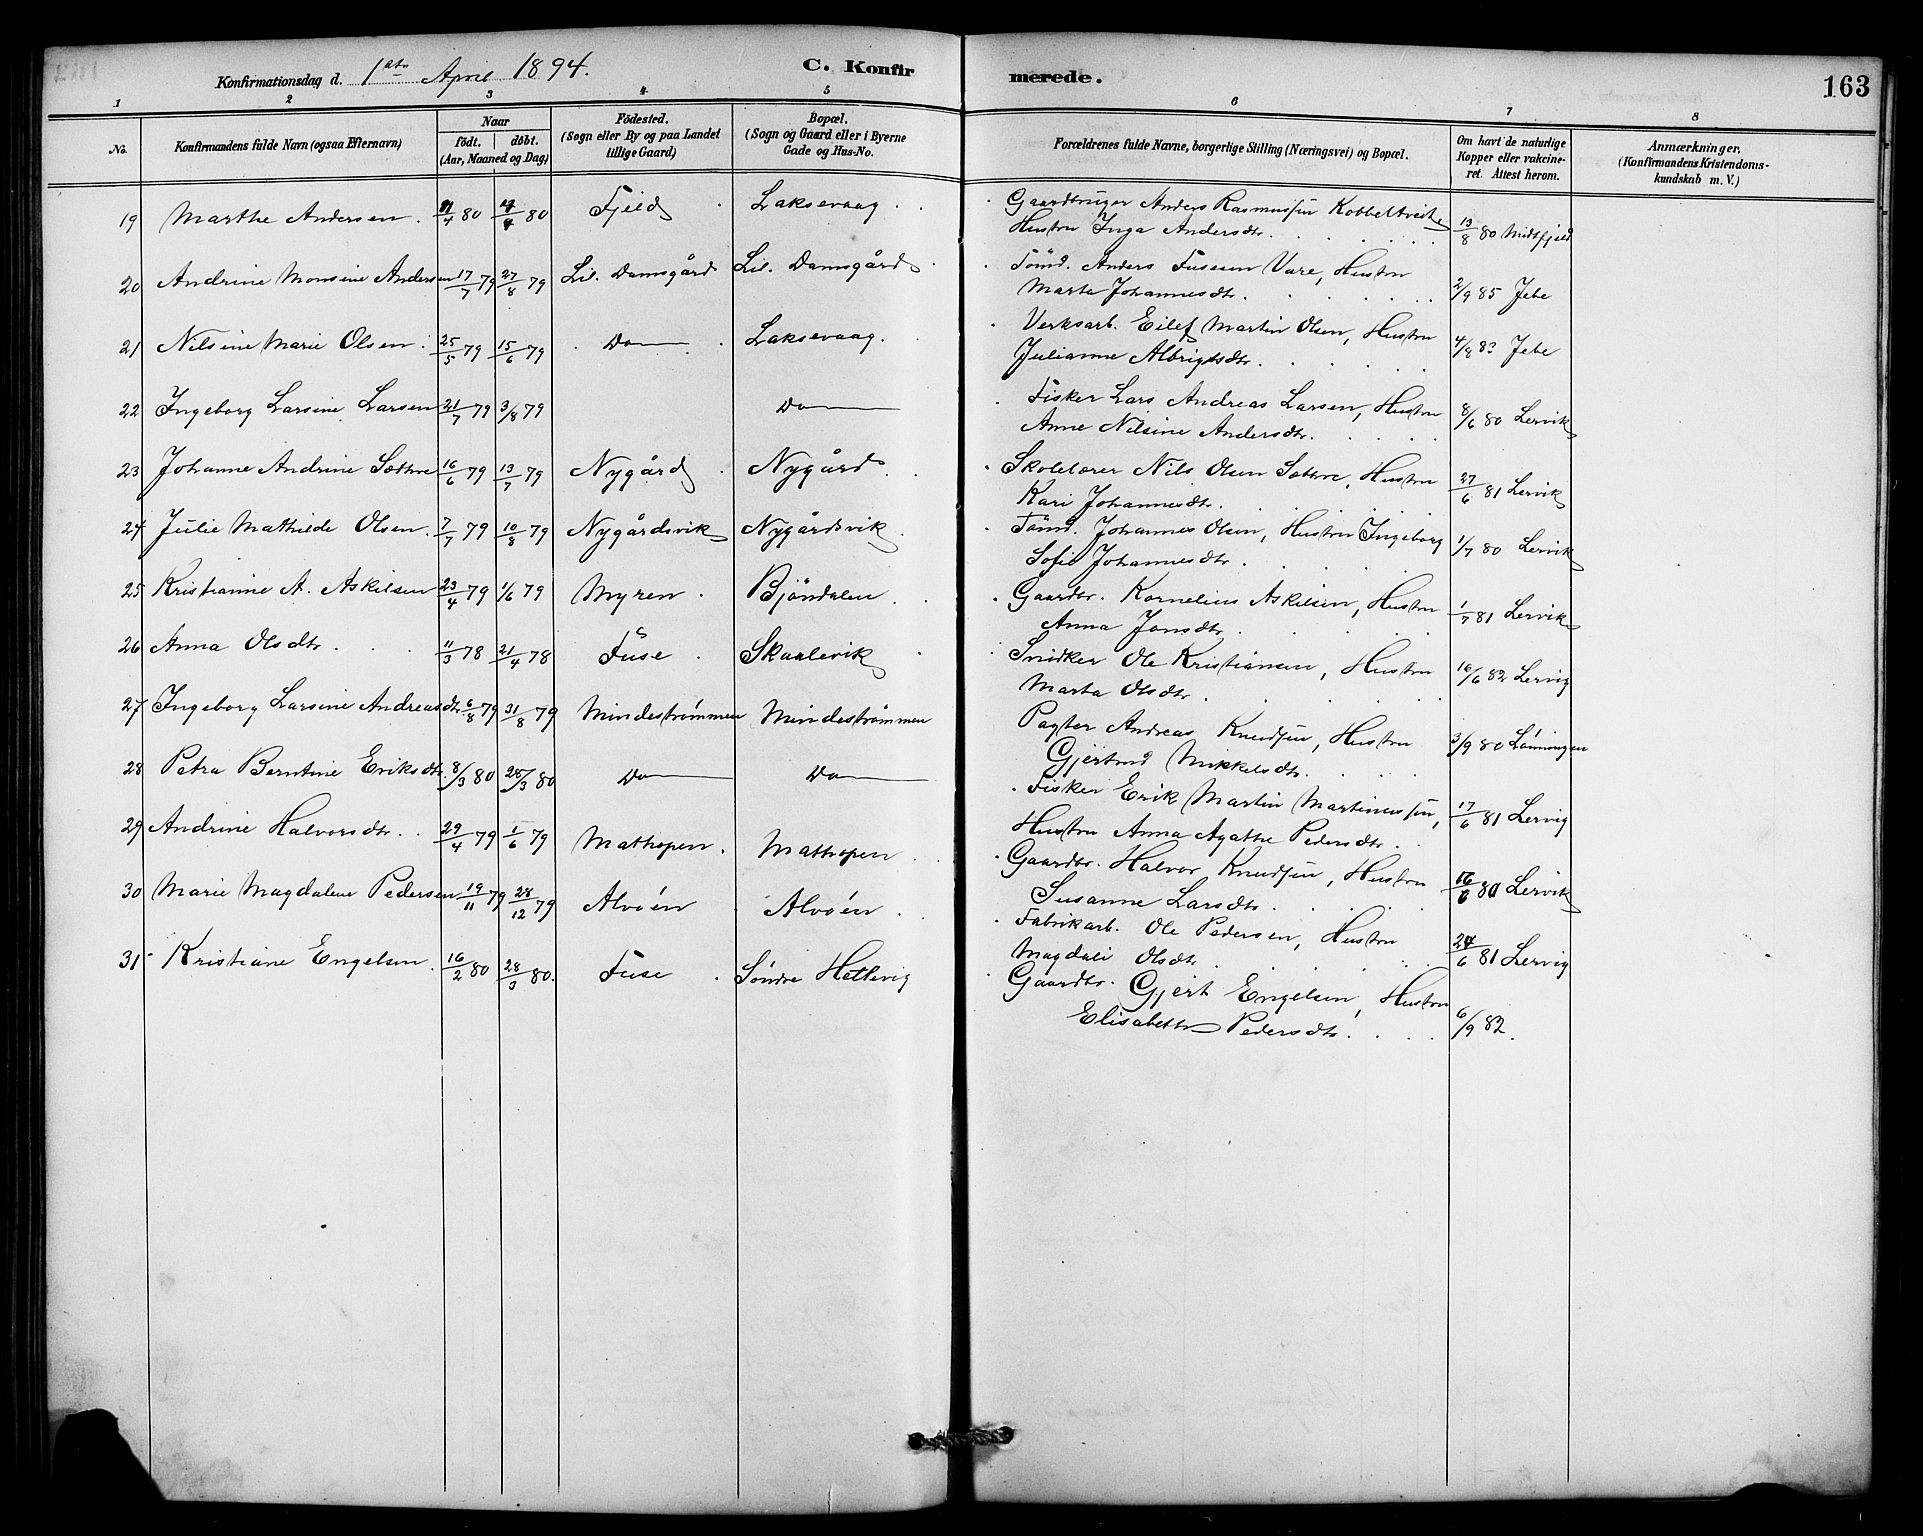 Konfirmationsdag d. 1ste April 1894. C. Konfirmerede. 163
1 2 3 4 5 6 7 8
No. Konfirmandens fulde Navn (ogsaa Efternavn) Naar födt. döbt. (Aar, Maaned og Dag) Födested. (Sogn eller By og paa Landet tillige Gaard) Bopæl. (Sogn og Gaard eller i Byerne Gade og Hus-No. Forældrenes fulde Navne, borgerlige Stilling (Næringsvei) og Bopæl. Om havt de naturlige Kopper eller vakcineret. Attest herom. Anmærkninger. (Konfirmandens Kristendomskundskab m. V.)
19 Marthe Andersen. 11/4 80 4/4 80 Fjeld Laksevaag. Gaardbruger Anders Rasmussen Kobbeltveit
Hustru Inga Andersdtr. 13/8 80 Midtfjeld
20 Andrine Monsine Andersen 17/7 79 27/8 79 Lil. Damsgård Lil. Damsgård Tömd. Anders Vare, Hustru
Marta Johannesdtr. 2/9 85 Jebe
21 Nilsine Marie Olsen. 25/5 79 15/6 79 Do Laksevaag. Verksarb. Eilef Martin Olsen, Hustru
Julianne Albrigtsdtr. 4/8 83 Jebe
22 Ingeborg Larsine Larsen 21/7 79 3/8 79 Do Fisker Lars Andreas Larsen, Hustru
Anne Nilsine Andersdtr. 8/6 80 Lervik
23 Johanne Andrine Sættre 16/6 79 13/7 79 Nygård Nygård Skolelærer Nils Olsen Sættre, Hustru
Kari Johannesdtr. 27/6 81 Lervik
24 Julie Mathilde Olsen. 7/7 79 10/8 79 Nygårdsvik Nygårdsvik Tömd. Johannes Olsen, Hustru Ingeborg
Sofie Johannesdtr. 1/7 80 Lervik
25 Kristianne A. Askilsen 23/4 79 1/6 79 Myren. Bjöndalen Gaardbr. Kornelius Askilsen, Hustru
Anna Jonsdtr. 1/7 81 Lervik
26 Anna Olsdtr. 11/3 78 21/4 78 Fuse. Skaalevik Snidker Ole Kristiansen, Hustru
Marta Olsdtr. 16/6 82 Lervig
27 Ingeborg Larsine Andreasdtr 6/8 79 31/8 79 Mindeströmmen Mindeströmmen Pagter Andreas Knudsen, Hustru
Gjertrud Mikkelsdtr. 3/9 80 Lönningen
28 Petra Berntine Eriksdtr. 8/3 80 28/3 80 Do Do Fisker Erik Martin Martinussen,
Hustru Anna Agathe Pedersdtr. 17/6 81 Lervig
29 Andrine Halvorsdtr. 29/4 79 1/6 79 Mathopen. Mathopen. Gaardbr. Halvor Knudsen, Hustru
Susanne Larsdtr. 16/6 80 Lervik
30 Marie Magdalene Pedersen 19/11 79 28/12 79 Alvöen Alvöen Fabrikarb. Ole Pedersen, Hustru
Magdeli Olsdtr. 24/6 81 Lervig
31 Kristiane Engelsen. 16/2 80 28/3 80. Fuse. Söndre Hetlevig Gaardbr. Gjert Engelsen, Hustru
Elisabeth Pedersdtr. 6/9 82.